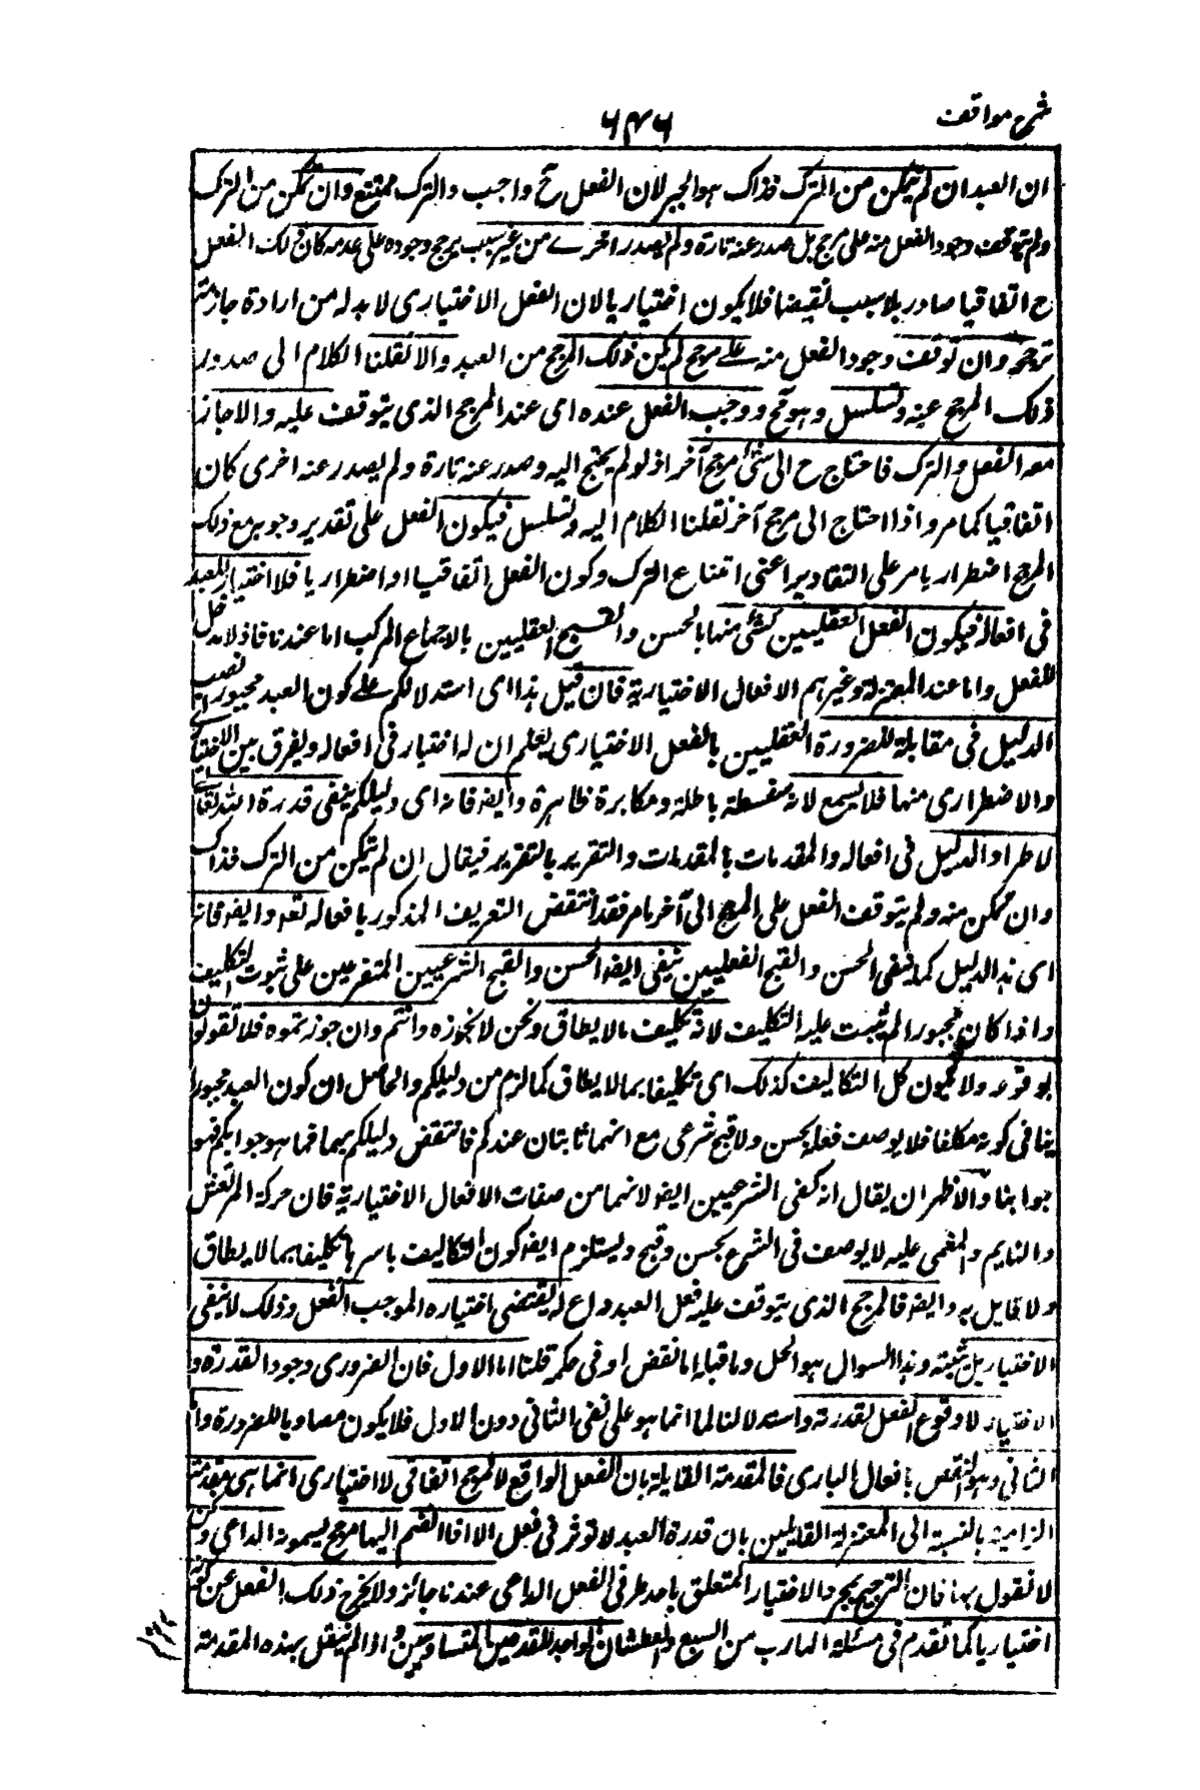 شرح مواقف
٦٣٦
ان العبد ان لم يتمكن من الترك فذاك هو الجبر لان الفعل ح واجب والترك ممتنع وان تمكن من الترك
ولم يتوقف وجود الفعل منه على مرجح بل صدر عنه تارة ولم يصدر اخرے من غير سبب يرجح وجوده على عدمه كان ذلك الفعل
ح اتفاقيا صادرا بلا سبب يقتضيه فلا يكون اختياريا لان الفعل الاختيارى لا بد له من ارادة جازمة
ترجحه وان توقف وجود الفعل منه علے مرجح لم يكن ذلك المرجح من العبد والا نقلنا الكلام الى صدور
ذلك المرجح عنه وتسلسل وهو مح ووجب الفعل عنده اى عند المرجح الذى يتوقف عليه والا جاز
معه الفعل والترك فاحتاج ح الى شئ مرجح آخر اذ لو لم يحتج اليه وصدر عنه تارة ولم يصدر عنه اخرى كان
اتفاقيا كما مر واذا احتاج الى مرجح آخر نقلنا الكلام اليه وتسلسل فيكون الفعل على تقدير وجوبه مع ذلك
المرجح اضطراريا مر على التقادير اعنى امتناع الترك وكون الفعل اتفاقيا او اضطراريا فلا اختيار للعبد
فى افعاله فيكون الفعل العقليين كشئ منها بالحسن والقبيح العقليين بالاجماع المركب اما عندنا فاذ لا مدخل
للفعل واما عند المعتزلة وغيرهم الافعال الاختيارية فان قيل هذا اى استدلالكم علے كون العبد مجبورا نصب
الدليل فى مقابلة الضرورة العقليين بالفعل الاختيارى يعلم ان له اختيار فى افعاله ويفرق بين الاختيارے
والاضطرارى منها فلا يسمع لانه سفسطة باطلة ومكابرة ظاهرة وايضا فانه اى دليلكم ينفى قدرة الله تعالى
لاطراد الدليل فى افعاله والمقدمات بالمقدمات والتقرير بالتقرير فيقال ان لم يتمكن من الترك فذاك
وان تمكن منه ولم يتوقف الفعل على المرجح الى آخر ما مر فقد انتقض التعريف المذكور بافعاله تعه وايضا فانه
اى هذا الدليل كما ينفى الحسن والقبح الفعليين ينفى ايضا الحسن والقبح الشرعيين المتفرعين على ثبوت التكليف
واذا كان مجبورا لم يثبت عليه التكليف لانه تكليف ما لا يطاق ونحن لا نجوزه وانتم وان جوزتموه فلا تقولون
بوقوعه ولا يكون كل التكاليف كذلك اى تكليفا بما لا يطاق كما لزم من دليلكم والحاصل ان كون العبد مجبورا
ينافى كونه مكلفا فلا يوصف فعله بحسن ولا قبح شرعى مع انهما ثابتان عندكم فانتقض دليلكم بهما فما هو جوابكم فهو
جوابنا والاظهر ان يقال انه ينفى الشرعيين ايضا لانهما من صفات الافعال الاختيارية فان حركة المرتعش
والنايم والمغمى عليه لا يوصف فى الشرع بحسن وقبح ويستلزم ايضا كون التكاليف باسرها تكليفا بما لا يطاق
ولا قايل به وايضا فالمرجح الذى يتوقف عليه فعل العبد داع له يقتضى اختياره الموجب الفعل وذلك لا ينفى
الاختيار بل يثبته وهذا السوال هو الحل وما قبله اما نقض او فى حكمه قلنا اما الاول فان الضرورى وجود القدرة و
الاختيار لا وقوع الفعل بقدرته واستدلالنا لما انما هو على نفى الثانى دون الاول فلا يكون مصاد ما للضرورة واما
الثانى وهو النقص بافعال البارى فالمقدمة القايلة بان الفعل الواقع لا لمرجح اتفاقى لا اختيارى انما هى مقدمة
الزامية بالنسبة الى المعتزلة القايلين بان قدرة العبد لا توثر فى فعل الا اذا انضم اليها مرجح يسمونه الداعى ونحن
لا نقول بها فان الترجيح بمجرد الاختيار المتعلق باحد طرفى الفعل الداعى عندنا جائز ولا يخرج ذلك الفعل عن كونه
اختياريا كما تقدم فى مسئلة الهارب من السبع والعطشان الواجد للقدحين المتساويين واذا لم نقل بهذه المقدمة